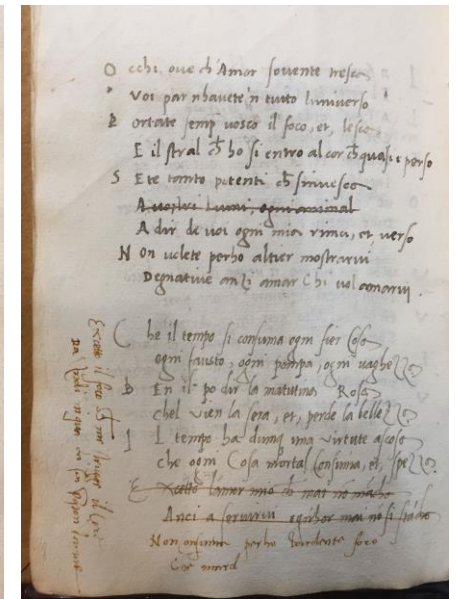 O cchi, oue ch'Amor souente tresca
Voi par n'hauete'n tutto l'uniuerso
P ortate semp uosco il foco, et, l'esca
E il stral ch ho si entro al cor ch quasi e perso
S Ete tanto potenti ch s'inuesca
A uostri Lumi, ogni animal
A dir de uoi ogni mia rima, et, uerso
N On uolete perho altier mostrarui
Degnatiue anzi amar Chi uol amarui.
C he il tempo si consuma ogni fier Cosa
ogni fausto, ogni pompa, ogni uaghezza
B En il po dir la matutina Rosa
chel uien la sera, et, perde la bellezza
I L tempo ha dunq una uirtute ascosa
che ogni Cosa mortal Consuma, et, spezza
E xcetto l'amor mio ch mai no
Anci a seruirui mai no si
Non consuma perho foco
Che
Excetto il foco